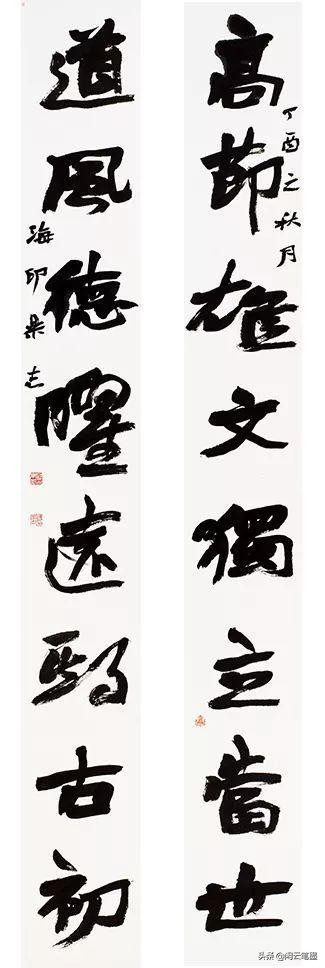 高節雄文獨立當世
丁酉之秋月
道風德曜遠古初
海印志
头条@闲云笔墨